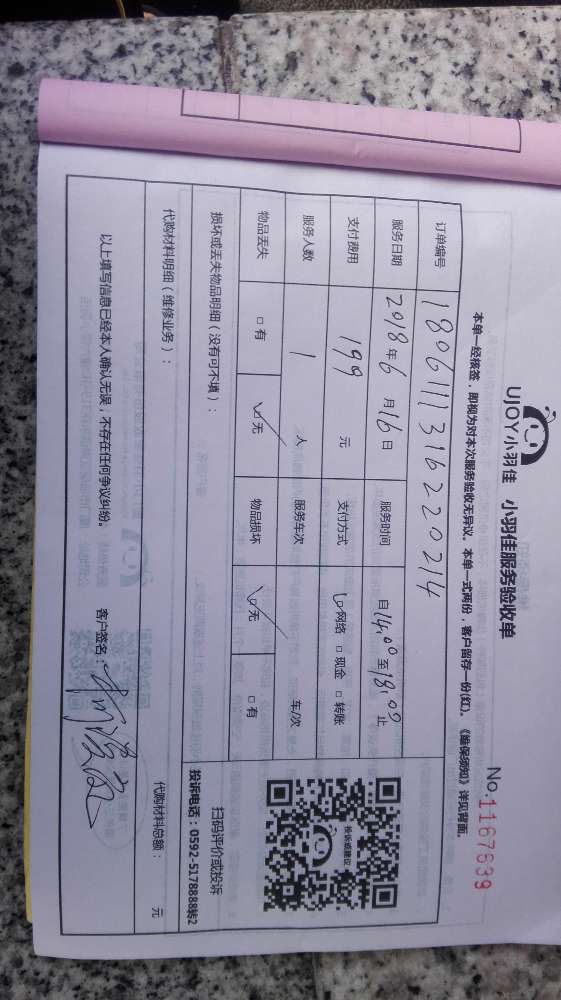 UJOY小羽佳 小羽佳服务验收单
No.1167639
本单一经核签，即视为对本次服务验收无异议。本单一式两份，客户留存一份(红)。《维保须知》详见背面。
订单编号 1806111316220214
服务日期 2018年6月16日 服务时间 自14:00至18:00止
支付费用 199元 支付方式 ☑网络 □现金 □转账
服务人数 1人 服务车次 车/次
物品丢失 □有 ☑无 物品损坏 ☑无 □有
投诉或建议
扫码评价或投诉
投诉电话：0592-5178888转2
损坏或丢失物品明细（没有可不填）：
代购材料明细（维修业务）：
代购材料总额： 元
以上填写信息已经本人确认无误，不存在任何争议纠纷。 客户签名：